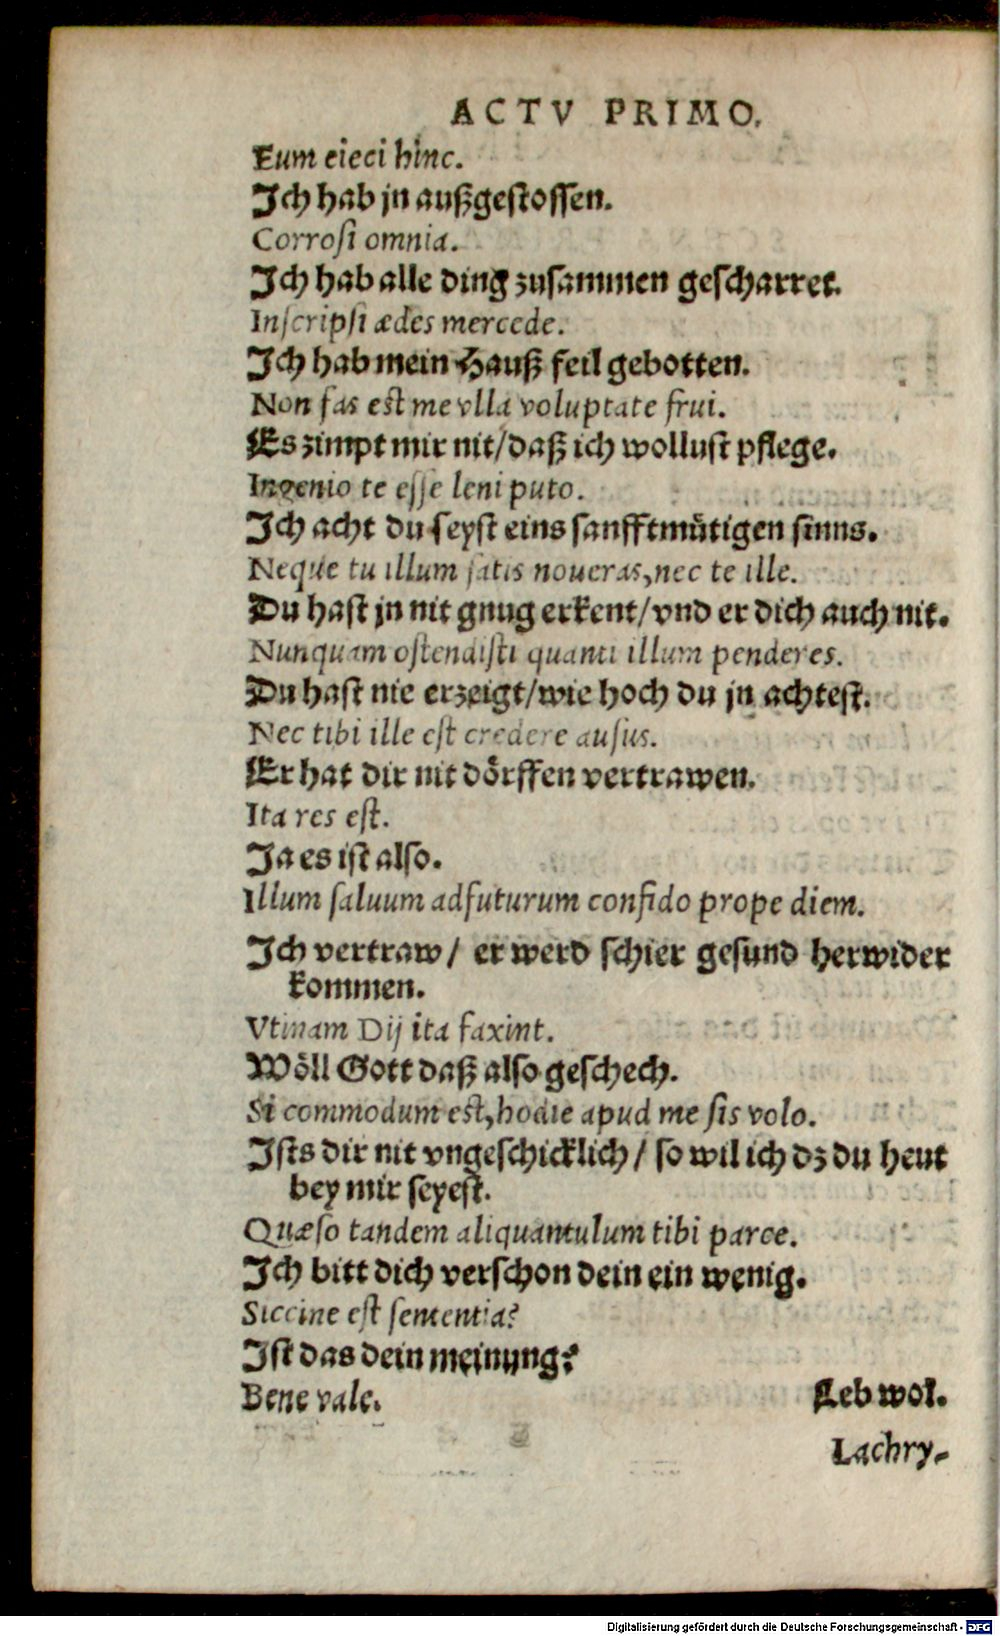 ACTV PRIMO.
Eum eieci hinc.
Ich hab jn außgestossen.
Corrosi omnia.
Ich hab alle ding zusammen gescharret.
Inscripsi ædes mercede.
Ich hab mein Hauß feil gebotten.
Non fas est me vlla voluptate frui.
Es zimpt mir nit/daß ich wollust pflege.
Ingenio te esse leni puto.
Ich acht du seyst eins sanfftmütigen sinns.
Neque tu illum satis noueras,nec te ille.
Du hast jn nit gnug erkent/vnd er dich auch nit.
Nunquam ostendisti quanti illum penderes.
Du hast nie erzeigt/wie hoch du jn achtest.
Nec tibi ille est credere ausus.
Er hat dir nit dörffen vertrawen.
Ita res est.
Ja es ist also.
Illum saluum adfuturum confido prope diem.
Ich vertraw/ er werd schier gesund herwider
kommen.
Vtinam Dij ita faxint.
Wöll Gott daß also geschech.
Si commodum est,hodie apud me sis volo.
Ists dir nit vngeschicklich/ so wil ich dz du heut
bey mir seyest.
Quæso tandem aliquantulum tibi parce.
Ich bitt dich verschon dein ein wenig.
Siccine est sententia?
Ist das dein meinung?
Bene vale. Leb wol.
Lachry-
Digitalisierung gefördert durch die Deutsche Forschungsgemeinschaft - DFG